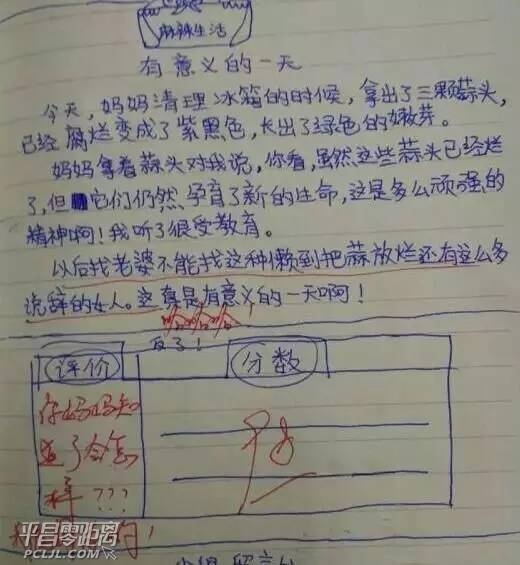 麻辣生活
有意义的一天
今天，妈妈清理冰箱的时候，拿出了三颗蒜头，
已经腐烂变成了紫黑色，长出了绿色的嫩芽。
妈妈拿着蒜头对我说，你看，虽然这些蒜头已经烂
了，但它们仍然孕育了新的生命，这是多么顽强的
精神啊！我听了很受教育。
以后找老婆不能找这种懒到把蒜放烂还有这么多
说辞的女人。这真是有意义的一天啊！
哈哈哈
反了！
评价
分数
你妈妈知
道了会怎
样???
优
平昌零距离
PCLJL.COM